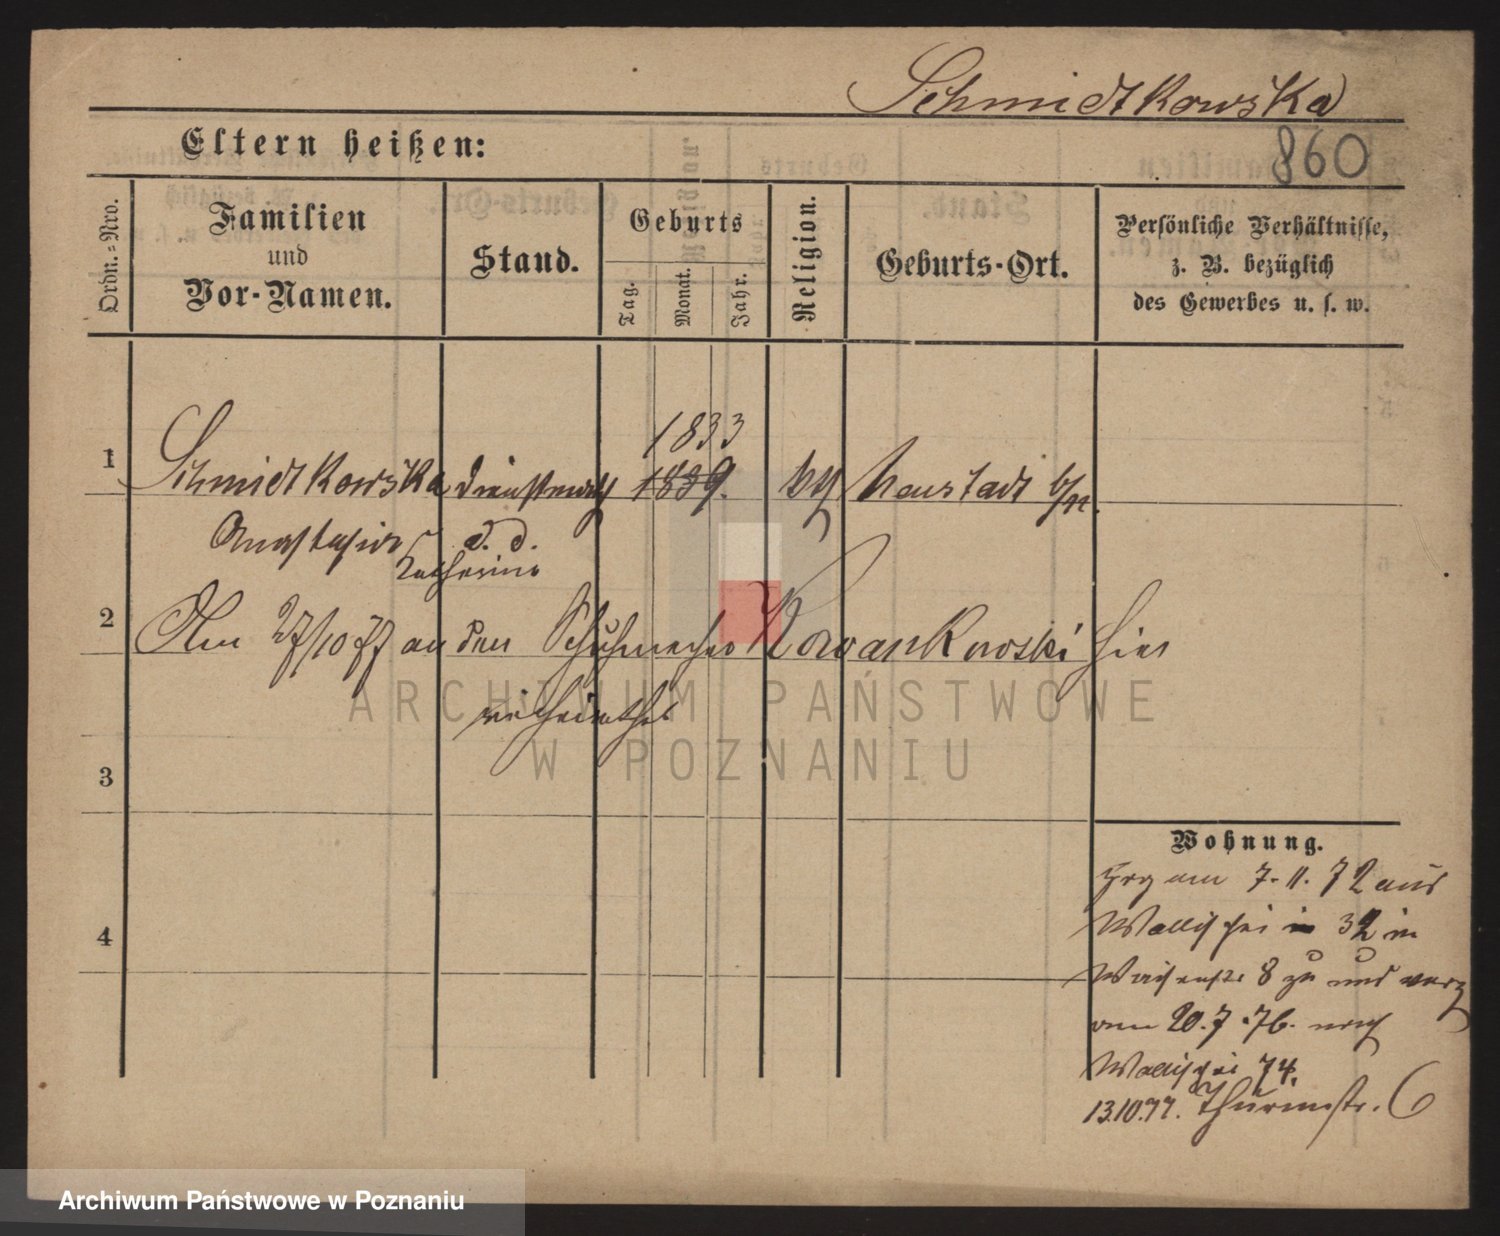 Schmidtkowska
860
Eltern heißen:
Ordn.=Nro.
Familien
und
Vor-Namen.
Stand.
Geburts
Tag.
Monat.
Jahr.
Religion.
Geburts-Ort.
Persönliche Verhältnisse,
z. B. bezüglich
des Gewerbes u. s. w.
1833
1 Schmidtkowska 1839. Neustadt b/
Anastasia
Katharina
2 Am 27/10 77 an den Schuhmacher Nowankowski hier
verheirathet
3
Wohnung.
4
am 7.11.72 aus
Wallischei in 32 in
8 zu und verz
am 20.7.76. nach
Wallischei 74.
13.10.77. Thurmstr. 6
ARCHIWUM PAŃSTWOWE
W POZNANIU
Archiwum Państwowe w Poznaniu